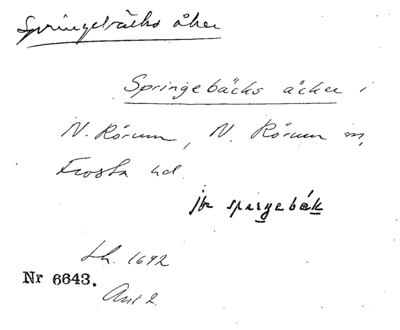 Springebäcks åker
Springebäcks åcker i
N. Rörum, N. Rörum sn,
Frosta hd.
jfr spirgebäk
Lh. 1692
Nr 6643.
Ant 2